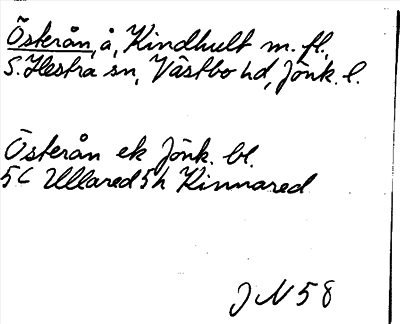 Österån, å, Kindhult m. fl.,
S. Hestra sn, Västbo hd, Jönk. l.
Österån ek Jönk. bl.
5C Ullared 5h Kinnared
JN 58